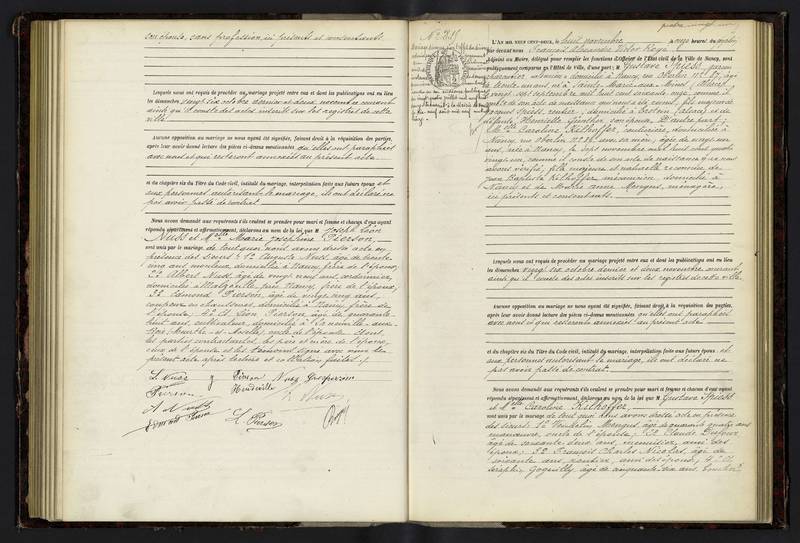 son épouse, sans profession ici présents et consentants
Lesquels nous ont requis de procéder au mariage projeté entre eux et dont les publications ont eu lieu
les dimanches vingt six octobre dernier et deux novembre courant
ainsi qu'il conste des actes inscrits sur les registres de cette
ville
Aucune opposition au mariage ne nous ayant été signifiée, faisant droit à la réquisition des parties,
après leur avoir donné lecture des pièces ci-dessus mentionnées qu'elles ont paraphées
avec nous et qui resteront annexées au présent acte
et du chapitre six du Titre du Code civil, intitulé du mariage, interpellation faite aux futurs époux et
aux personnes autorisant le mariage, ils ont déclaré ne
pas avoir passé de contrat
Nous avons demandé aux requérants s'ils veulent se prendre pour mari et femme et chacun d'eux ayant
répondu séparément et affirmativement, déclarons au nom de la loi que M. Joseph Léon
Nuss et Mlle Marie Joséphine Pierson,
sont unis par le mariage. de tout quoi nous avons dressé acte en
présence des sieurs: 1° Auguste Nuss, âgé de trente
cinq ans, mouleur, domicilié à Nancy, frère de l'époux;
2° Albert Nuss, âgé de vingt neuf ans, cordonnier,
domicilié à Malzéville, près Nancy, frère de l'époux;
3° Edmond Pierson, âgé de vingt cinq ans,
coupeur en chaussures, domicilié à Nancy, frère de
l'épouse; 4° Léon Pierson, âgé de quarante
huit ans, cultivateur, domicilié à
Meurthe et Moselle, oncle de l'épouse. Et ont
les parties contractantes, les père et mère de l'époux,
ceux de l'épouse et les témoins signé avec nous le
présent acte après lecture et collation faites./.
L. Nuss
Pierson
Nuss
Pierson
A Nuss
Edmond Pierson
L. Pierson
N° 825
L'AN MIL NEUF CENT-DEUX, le huit novembre à onze heures du matin
par devant nous François Alexandre Victor Royé
Adjoint au Maire, délégué pour remplir les fonctions d'Officier de l'État civil de la Ville de Nancy, sont
publiquement comparus en l'Hôtel de Ville, d'une part: M. Gustave Spiess, garçon
charretier, domicilié à Nancy, rue Oberlin n° 89, âgé
de trente un ans, né à Sainte-Marie-aux-Mines (Alsace)
le vingt sept septembre mil huit cent soixante onze, comme il
conste de son acte de naissance
défunte Henriette Günther, son épouse. D'autre part;
Mlle Caroline Kilhoffer, couturière, domiciliée à
Nancy, rue Oberlin n° 89, avec sa mère, âgée de vingt un
ans, née à Nancy, le sept novembre mil huit cent quatre
vingt un, comme il conste de son acte de naissance que nous
avons vérifié, fille majeure et naturelle reconnue de
Jean Baptiste Kilhoffer, mécanicien, domicilié à
Nancy et de Marie Anne Mengus, ménagère,
ici présents et consentants.
Lesquels nous ont requis de procéder au mariage projeté entre eux et dont les publications ont eu lieu
les dimanches vingt six octobre dernier et deux novembre courant
ainsi qu'il conste des actes inscrits sur les registres de cette ville.
Aucune opposition au mariage ne nous ayant été signifiée, faisant droit à la réquisition des parties,
après leur avoir donné lecture des pièces ci-dessus mentionnées qu'elles ont paraphées
avec nous et qui resteront annexées au présent acte
et du chapitre six du Titre du Code civil, intitulé du mariage, interpellation faite aux futurs époux et
aux personnes autorisant le mariage, ils ont déclaré ne
pas avoir passé de contrat
Nous avons demandé aux requérants s'ils veulent se prendre pour mari et femme et chacun d'eux ayant
répondu séparément et affirmativement, déclarons au nom de la loi que M. Gustave Spiess
et Mlle Caroline Kilhoffer,
sont unis par le mariage. de tout quoi nous avons dressé acte en présence
des sieurs: 1° Mengus, âgé de quarante quatre ans
manœuvre, oncle de l'épouse; 2° Claude Dufour,
âgé de soixante deux ans, menuisier, ami des
époux; 3° François Charles Nicolas, âgé de
soixante ans, rentier, ami des époux; 4°
Goguilly, âgé de cinquante six ans,